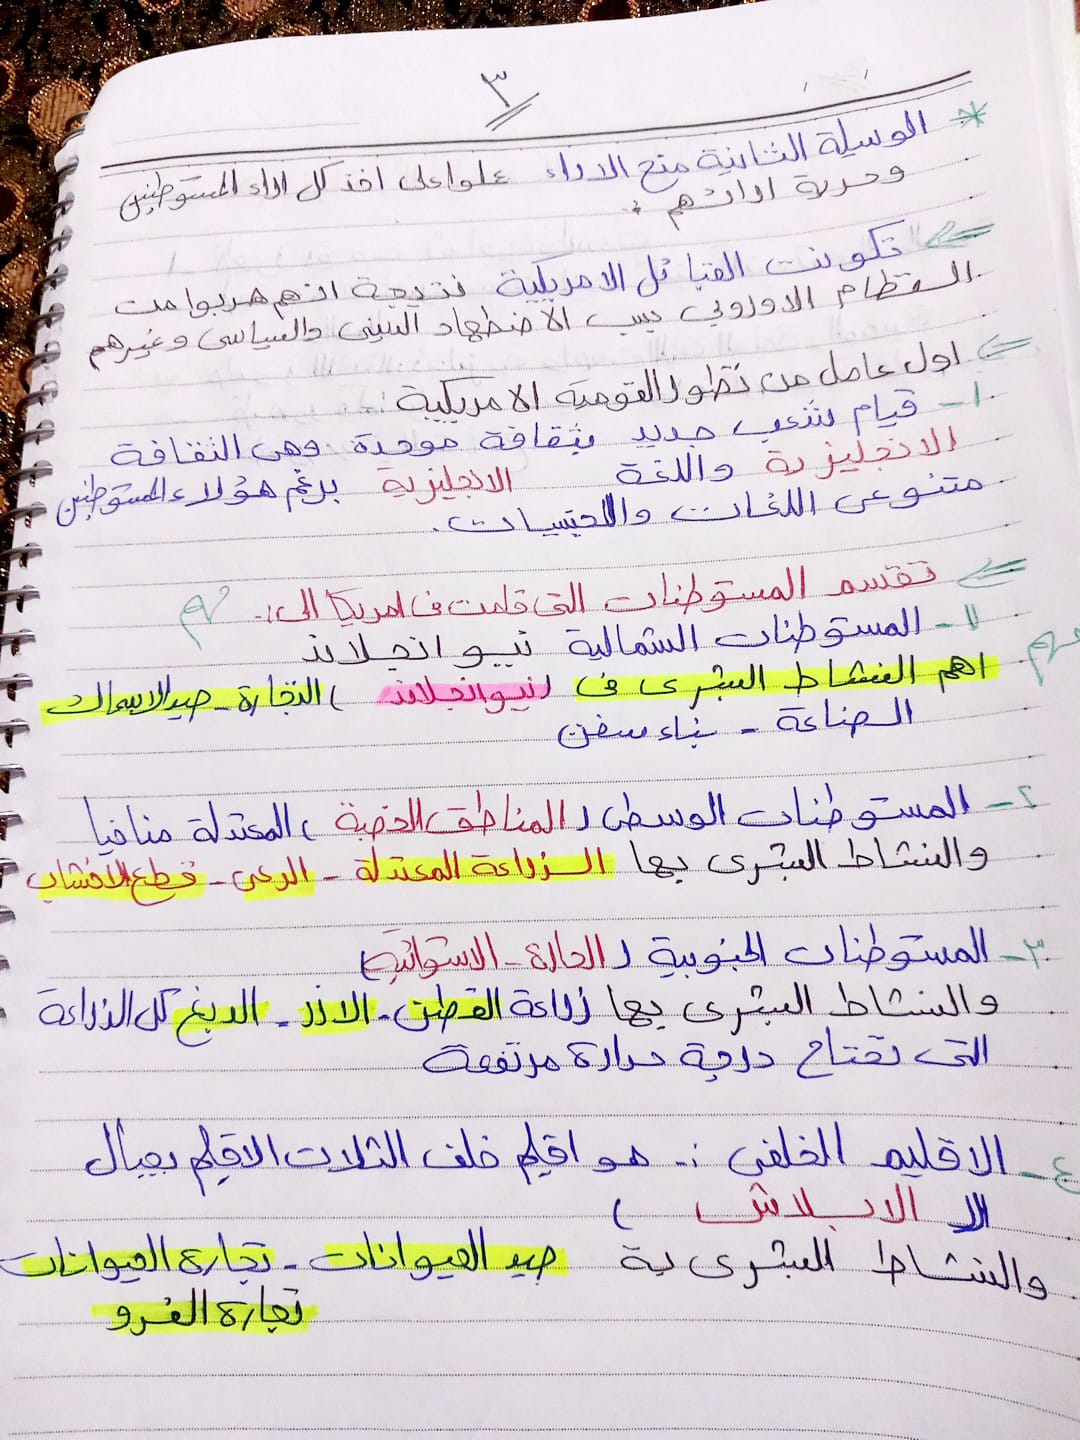 ٣
* الوسيلة الثانية منح الاراء علوا على اخذ كل اراء المستوطنين
وحرية ارائهم :
تكونت القبائل الامريكية نتيجة انهم هربوا من
النظام الاوروبي بسبب الاضطهاد الديني والسياسي وغيرهم
اول عامل من تطور القومية الامريكية :.
١- قيام شعب جديد بثقافة موحدة وهي الثقافة
الانجليزية واللغة الانجليزية برغم هؤلاء المستوطنين
متنوعى اللغات والجنسيات.
تقتسم المستوطنات التى قامت فى امريكا الى :. مهم
١- المستوطنات الشمالية نيو انجلاند
مهم اهم النشاط البشرى فى (نيو انجلاند) التجارة - صيد الاسماك
الصناعة - بناء سفن
٢- المستوطنات الوسطى (المناطق الخصبة) المعتدلة مناخيا
والنشاط البشرى بها الزراعة المعتدلة - الرعى - قطع الاخشاب
٣- المستوطنات الجنوبية (الحارة - الاستوائية)
والنشاط البشرى بها زراعة القطن - الارز - الدبغ كل الزراعة
التى تحتاج درجة حرارة مرتفعة
٤- الاقليم الخلفى :- هو اقليم خلف الثلاث الاقليم بجبال
الابلاش )
والنشاط البشرى بة صيد الحيوانات - تجارة الحيوانات
تجارة الفرو